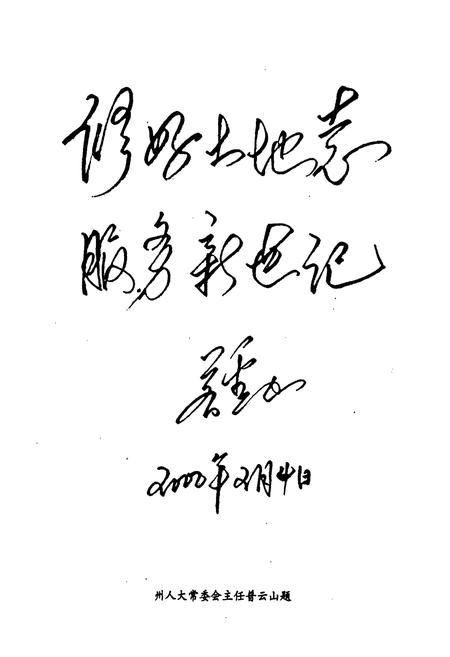 修好土地志
服务新世记
普云山
2000年2月4日
州人大常委会主任普云山题